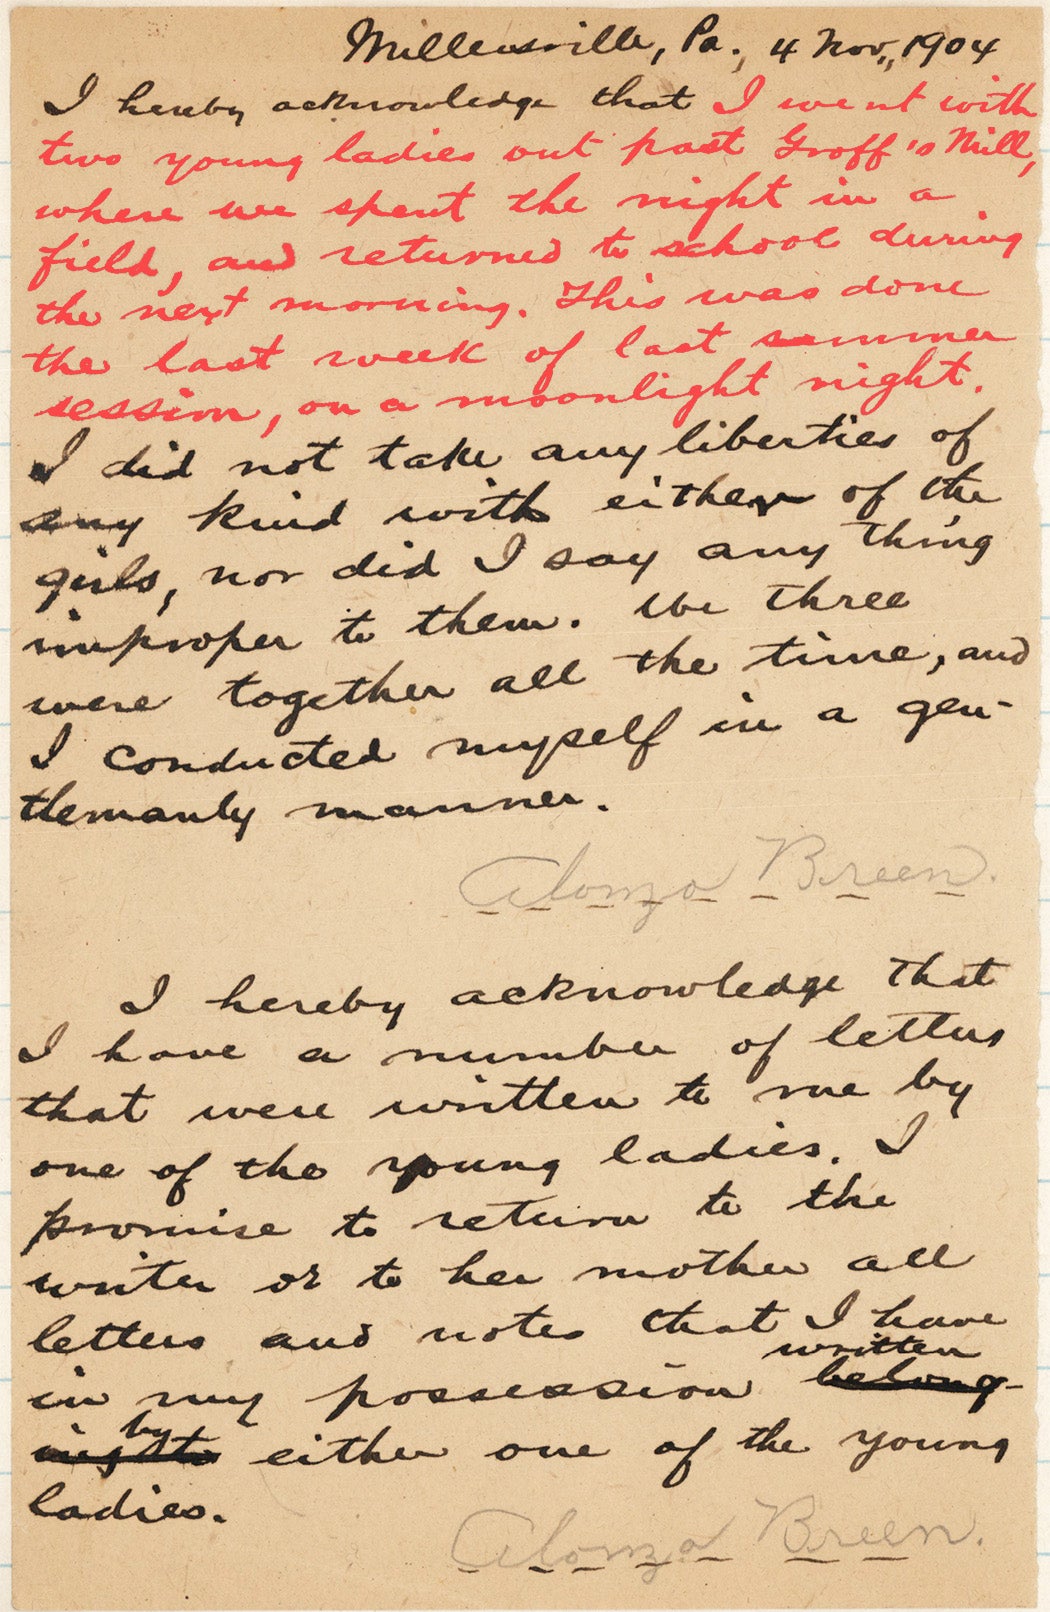 Millersville, Pa., 4 Nov., 1904
I hereby acknowledge that I went with
two young ladies out past Groff's Mill,
where we spent the night in a
field, and returned to school during
the next morning. This was done
the last week of last summer
session, on a moonlight night.
I did not take any liberties of
any kind with either of the
girls, nor did I say any thing
improper to them. We three
were together all the time, and
I conducted myself in a gen-
tlemanly manner.
Alonzo Breen.
I hereby acknowledge that
I have a number of letters
that were written to me by
one of the young ladies. I
promise to return to the
writer or to her mother all
letters and notes that I have
written
in my possession belong-
by
ing to either one of the young
ladies.
Alonzo Breen.